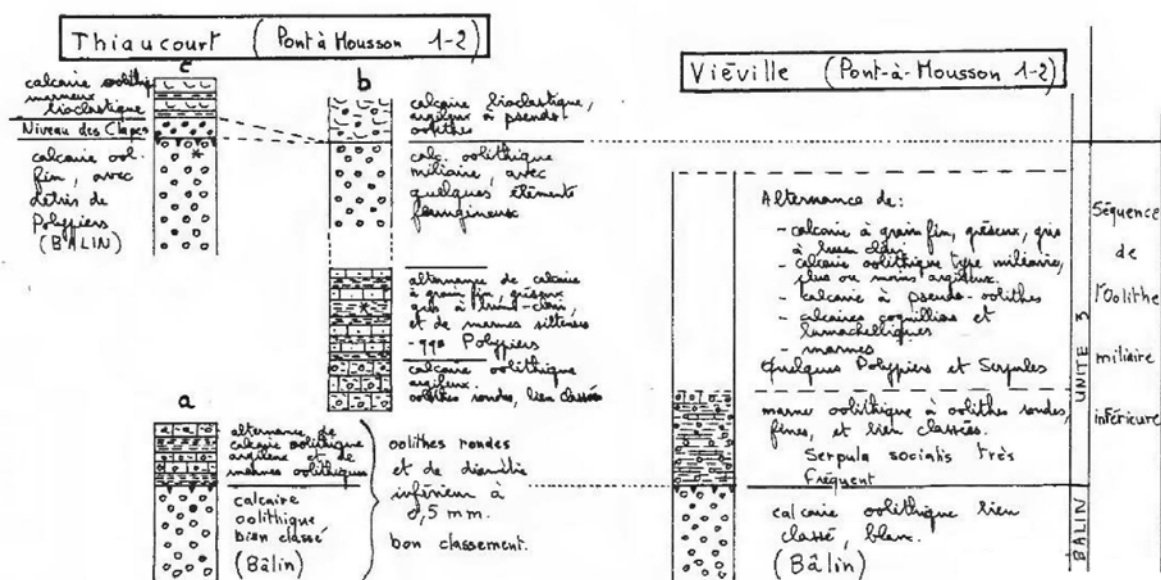 Thiaucourt (Pont à Mousson 1-2)
c
calcaire oolithiq
marneux
bioclastique
Niveau des Clapes
calcaire ool.
fin, avec
détris de
Polypiers
(BÂLIN)
b
calcaire bioclastique,
argileux à pseudo-
oolithes
calc. oolithique
miliaire, avec
quelques éléments
ferrugineux
alternance de calcaire
à grain fin, gréseux
gris à brun-clair,
et de marnes silteuses
- qqs Polypiers
calcaire oolithique
argileux.
oolithes rondes, bien classées
a
alternance de
calcaire oolithique
argileux et de
marnes oolithiques
calcaire
oolithique
bien classé
(Bâlin)
oolithes rondes
et de diamètre
inférieur à
0,5 mm.
bon classement.
Viéville (Pont-à-Mousson 1-2)
Alternance de:
- calcaire à grain fin, gréseux, gris
à brun clair
- calcaire oolithique type miliaire,
plus ou moins argileux.
- calcaire à pseudo-oolithes
- calcaires coquilliers et
lumachelliques
- marnes
Quelques Polypiers et Serpules
marnes oolithique à oolithes rondes,
fines, et bien classées.
Serpula socialis très
fréquent
calcaire oolithique bien
classé, blanc.
(Bâlin)
UNITE 3
BALIN
Séquence
de
l'Oolithe
miliaire
inférieure